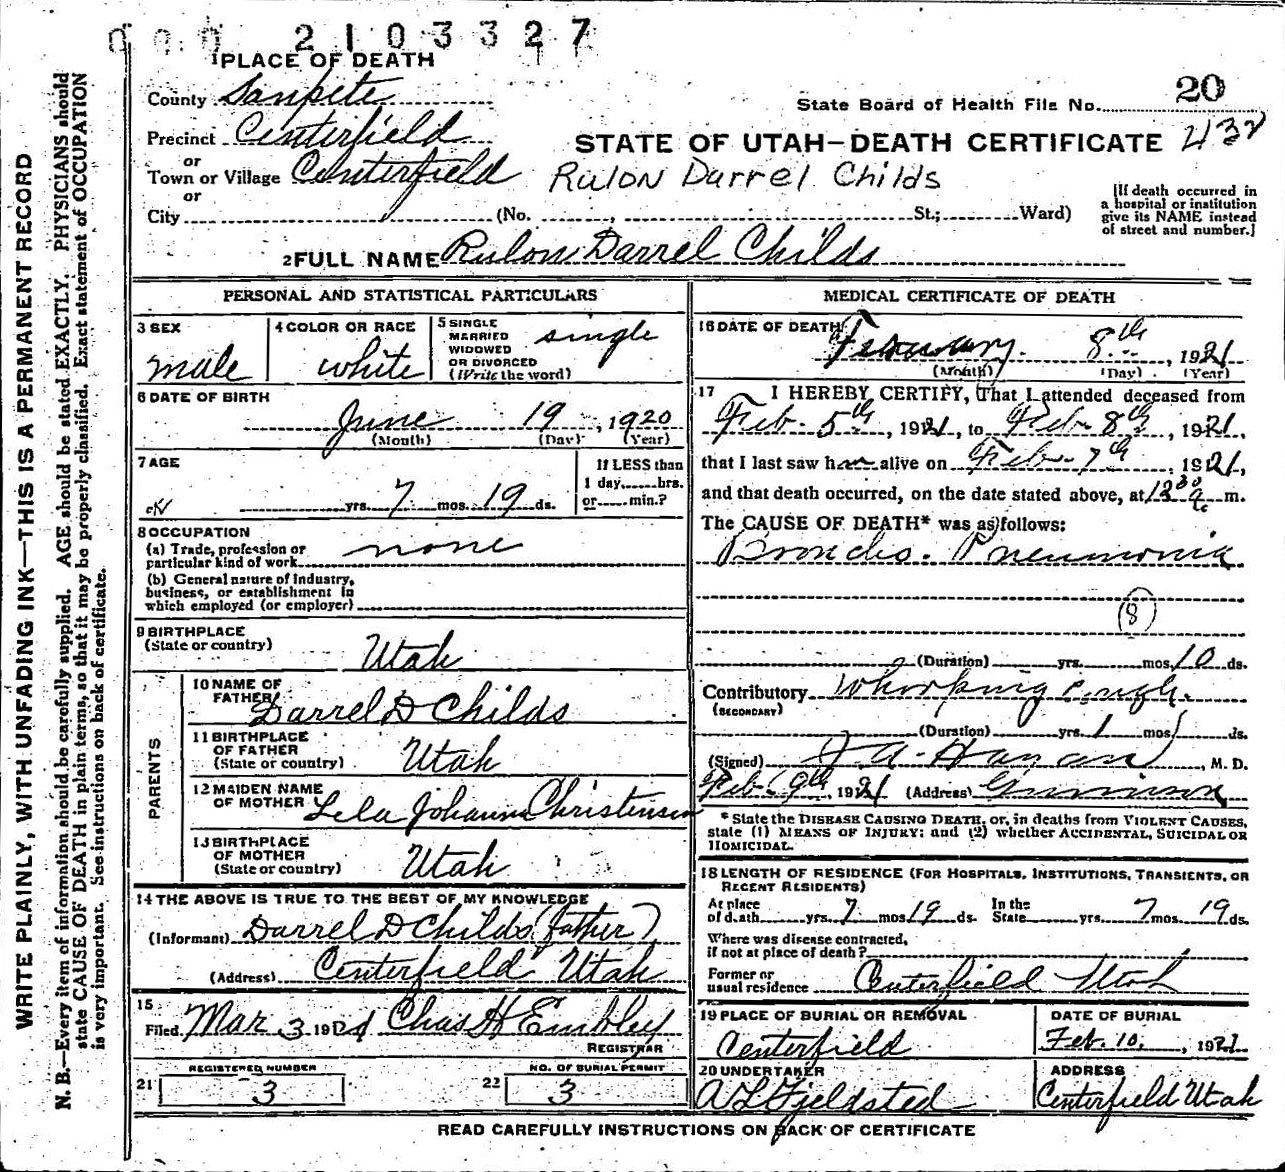 000 2103327
1 PLACE OF DEATH
County Sanpete
Precinct Centerfield
or
Town or Village Centerfield
or
City (No. , St.; Ward)
State Board of Health File No. 20
STATE OF UTAH—DEATH CERTIFICATE 432
Rulon Darrel Childs
[If death occurred in
a hospital or institution
give its NAME instead
of street and number.]
2 FULL NAME Rulon Darrel Childs
PERSONAL AND STATISTICAL PARTICULARS
3 SEX
male
4 COLOR OR RACE
white
5 SINGLE
MARRIED
WIDOWED
OR DIVORCED
(Write the word)
single
6 DATE OF BIRTH
June 19, 1920
(Month) (Day) (Year)
7 AGE
yrs. 7 mos. 19 ds.
If LESS than
1 day, hrs.
or min.?
8 OCCUPATION
(a) Trade, profession or
particular kind of work none
(b) General nature of Industry,
business, or establishment in
which employed (or employer)
9 BIRTHPLACE
(State or country)
Utah
PARENTS
10 NAME OF
FATHER
Darrel D Childs
11 BIRTHPLACE
OF FATHER
(State or country)
Utah
12 MAIDEN NAME
OF MOTHER Lela Johanna Christensen
13 BIRTHPLACE
OF MOTHER
(State or country)
Utah
14 THE ABOVE IS TRUE TO THE BEST OF MY KNOWLEDGE
(Informant) Darrel D Childs (father)
(Address) Centerfield Utah
15
Filed Mar 3 1921 Chas H Embley
REGISTRAR
REGISTERED NUMBER
21 3
NO. OF BURIAL PERMIT
22 3
MEDICAL CERTIFICATE OF DEATH
16 DATE OF DEATH
February 8th, 1921
(Month) (Day) (Year)
17 I HEREBY CERTIFY, That I attended deceased from
Feb. 5th, 1921, to Feb 8th, 1921,
that I last saw him alive on Feb 7th, 1921,
and that death occurred, on the date stated above, at 12 30 a. m.
The CAUSE OF DEATH* was as follows:
Broncho. Pneumonia
(8)
(Duration) yrs. mos. 10 ds.
Contributory Whooping Cough.
(SECONDARY)
(Duration) yrs. 1 mos. ds.
(Signed) , M. D.
Feb 9th 1921 (Address) Gunnison
* State the DISEASE CAUSING DEATH, or, in deaths from VIOLENT CAUSES,
state (1) MEANS OF INJURY; and (2) whether ACCIDENTAL, SUICIDAL OR
HOMICIDAL.
18 LENGTH OF RESIDENCE (FOR HOSPITALS, INSTITUTIONS, TRANSIENTS, OR
RECENT RESIDENTS)
At place
of death yrs. 7 mos. 19 ds. In the
State yrs. 7 mos. 19 ds.
Where was disease contracted,
if not at place of death?
Former or
usual residence Centerfield Utah
19 PLACE OF BURIAL OR REMOVAL
Centerfield
DATE OF BURIAL
Feb. 10, 1921
20 UNDERTAKER
A L Fjeldsted
ADDRESS
Centerfield Utah
READ CAREFULLY INSTRUCTIONS ON BACK OF CERTIFICATE
WRITE PLAINLY, WITH UNFADING INK—THIS IS A PERMANENT RECORD
N. B.—Every item of information should be carefully supplied. AGE should be stated EXACTLY. PHYSICIANS should
state CAUSE OF DEATH in plain terms, so that it may be properly classified. Exact statement of OCCUPATION
is very important. See instructions on back of certificate.